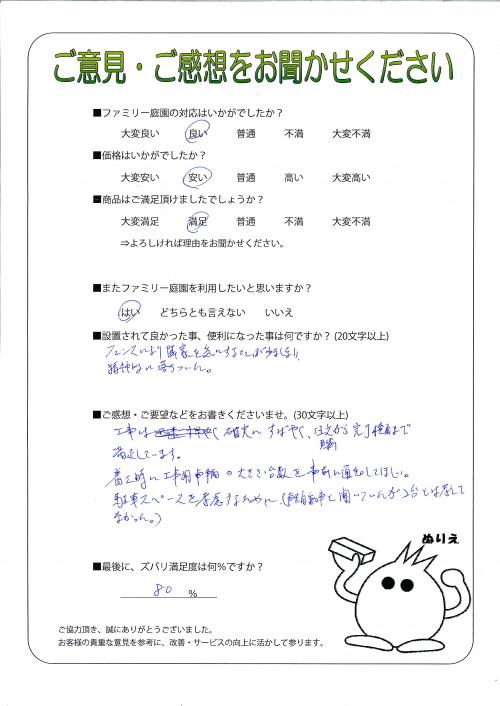 ご意見・ご感想をお聞かせください
■ファミリー庭園の対応はいかがでしたか？
大変良い 良い 普通 不満 大変不満
■価格はいかがでしたか？
大変安い 安い 普通 高い 大変高い
■商品はご満足頂けましたでしょうか？
大変満足 満足 普通 不満 大変不満
⇒よろしければ理由をお聞かせください。
■またファミリー庭園を利用したいと思いますか？
はい どちらとも言えない いいえ
■設置されて良かった事、便利になった事は何ですか？(20文字以上)
フェンスにより隣家を気にすることが少なくなり、
精神的に落ちついた。
■ご感想・ご要望などをお書きくださいませ。(30文字以上)
工事は 確実にすばやく、注文から完了検査まで
満足しています。
着工時に工事用車輌の大きさ、台数を事前に通知してほしい。
駐車スペースを考慮するために(軽自動車と聞いていたが2台とは思って
なかった。)
■最後に、ズバリ満足度は何％ですか？
80 %
ぬりえ
ご協力頂き、誠にありがとうございました。
お客様の貴重な意見を参考に、改善・サービスの向上に活かして参ります。